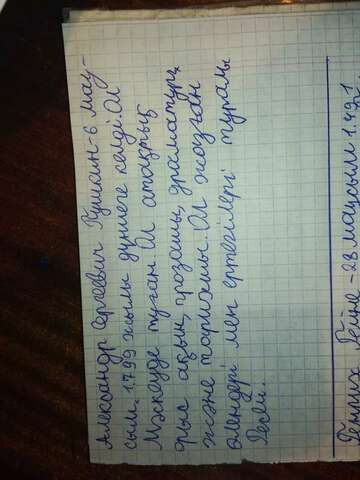 Александр Сергеевич Пушкин-6 мау-
сым 1799 жылы дүниеге келді. Ол
Мәскеуде туған. Ол атақты
орыс ақын, прозашы, драматург
және тарихшы. Ол жазған
өлеңдері мен ертегілері туралы
Генрих Гейне - 28 маусым 1.49.1